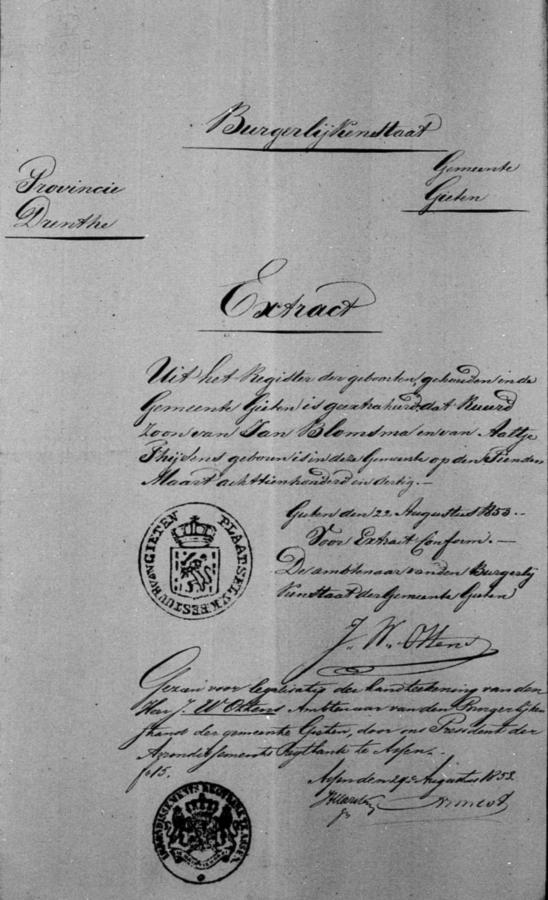 Burgerlijkenstaat
Provincie
Drenthe
Gemeente
Gieten
Extract
Uit het Register der geboorten, gehouden in de
Gemeente Gieten is geextraheerd, dat Ruurd
Zoon van Jan Blomsma en van Aaltje
Thijsens geboren is in deze Gemeente op den Tienden
Maart achttienhonderd en dertig.—
Gieten den 22 Augustus 1853.—
Voor Extract Conform.—
De ambtenaar van den Burgerlij
kenstaat der Gemeente Gieten
PLAATSELYK BESTUUR VAN GIETEN
J. W. Ottens
Gezien voor legalisatie der handteekening van den
Heer J. W. Ottens Ambtenaar van den Burgerlijken
stand der gemeente Gieten, door ons President der
Arrondissements Regtbank te Assen.
Assen den Augustus 1853.
ARRONDISSEMENTS REGTBANK ASSEN